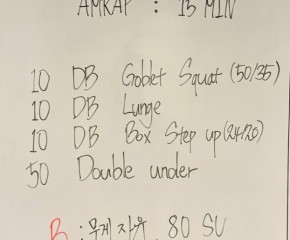 AMRAP : 15 MIN
10 DB Goblet Squat (50/35)
10 DB Lunge
10 DB Box Step up (24/20)
50 Double under
B : 무게 자유 80 SU